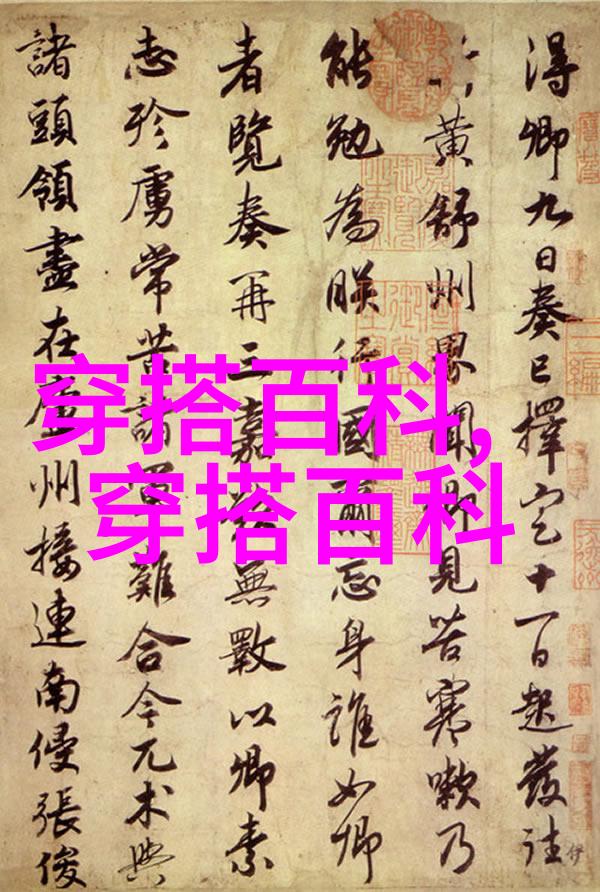 得卿九日奏已擇定十一日起發往
黃舒州界聞卿見苦寒嗽乃
能勉為朕行國爾忘身誰如卿
者覽奏再三嘉歎無斁以卿素
志殄虜常苦諸軍難合今兀朮與
諸頭領盡在廬州接連南侵張俊
穿搭百科,
穿搭百科